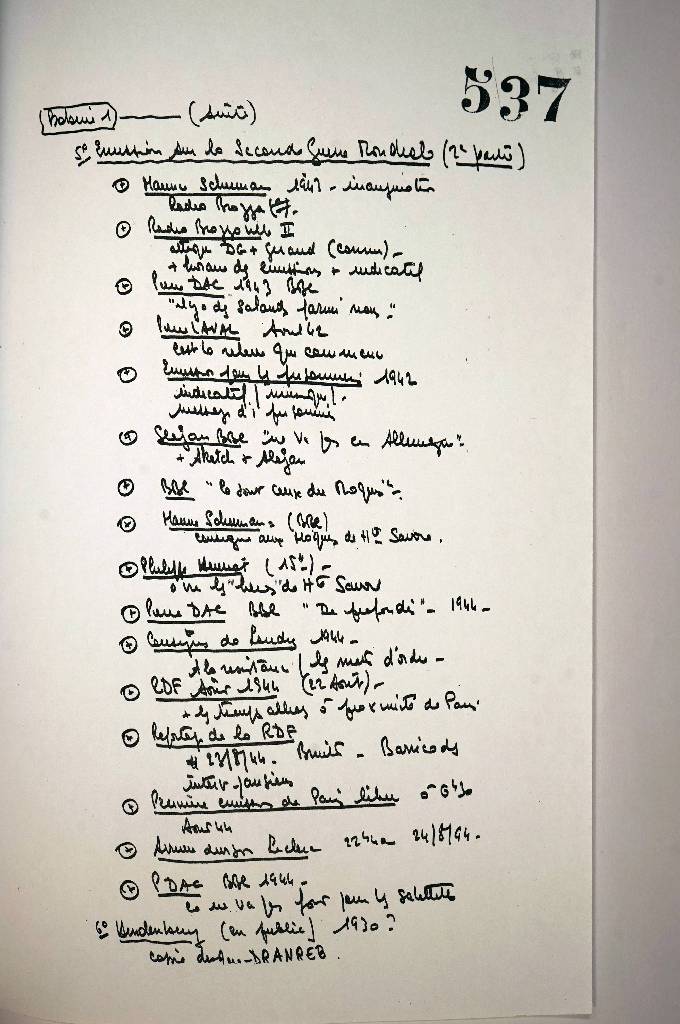 537
Bobine 1 — (suite)
5° Emission sur la Seconde Guerre Mondiale (2e partie)
Maurice Schumann 1943 - inauguration
Radio Brazza
Radio Brazzaville II
attaque DG + Giraud
+ horaire des émissions + indicatif
Pierre DAC 1943 BBC
"il y a des salauds parmi nous"
Pierre LAVAL Avril 42
c'est la relève qui commence
Emission pour les prisonniers 1942
indicatif / musique /
message d'1 prisonnier
Slogan BBC "ne va pas en Allemagne"
+ sketch + slogan
BBC "la Maquis"
Maurice Schumann (BBC)
consigne aux Maquis de Hte Savoie.
Philippe Henriot
Hte Savoie
Pierre DAC BBC "De profundis" - 1944 -
Consignes de Londres 1944 -
A la résistance / les mots d'ordre -
RDF Août 1944 (22 Août) -
+ les troupes alliées à proximité de Paris
Reportage de la RDF
23/8/44. Bruits - Barricades
interv. parisiens
Première émission de Paris libre
Août 44
Arrivée division Leclerc 24/8/44.
P DAC BBC 1944 -
ça ne va pas fort pour les satellites
6° Hindenburg (en public) 1930 ?
copie disque - DRANREB.